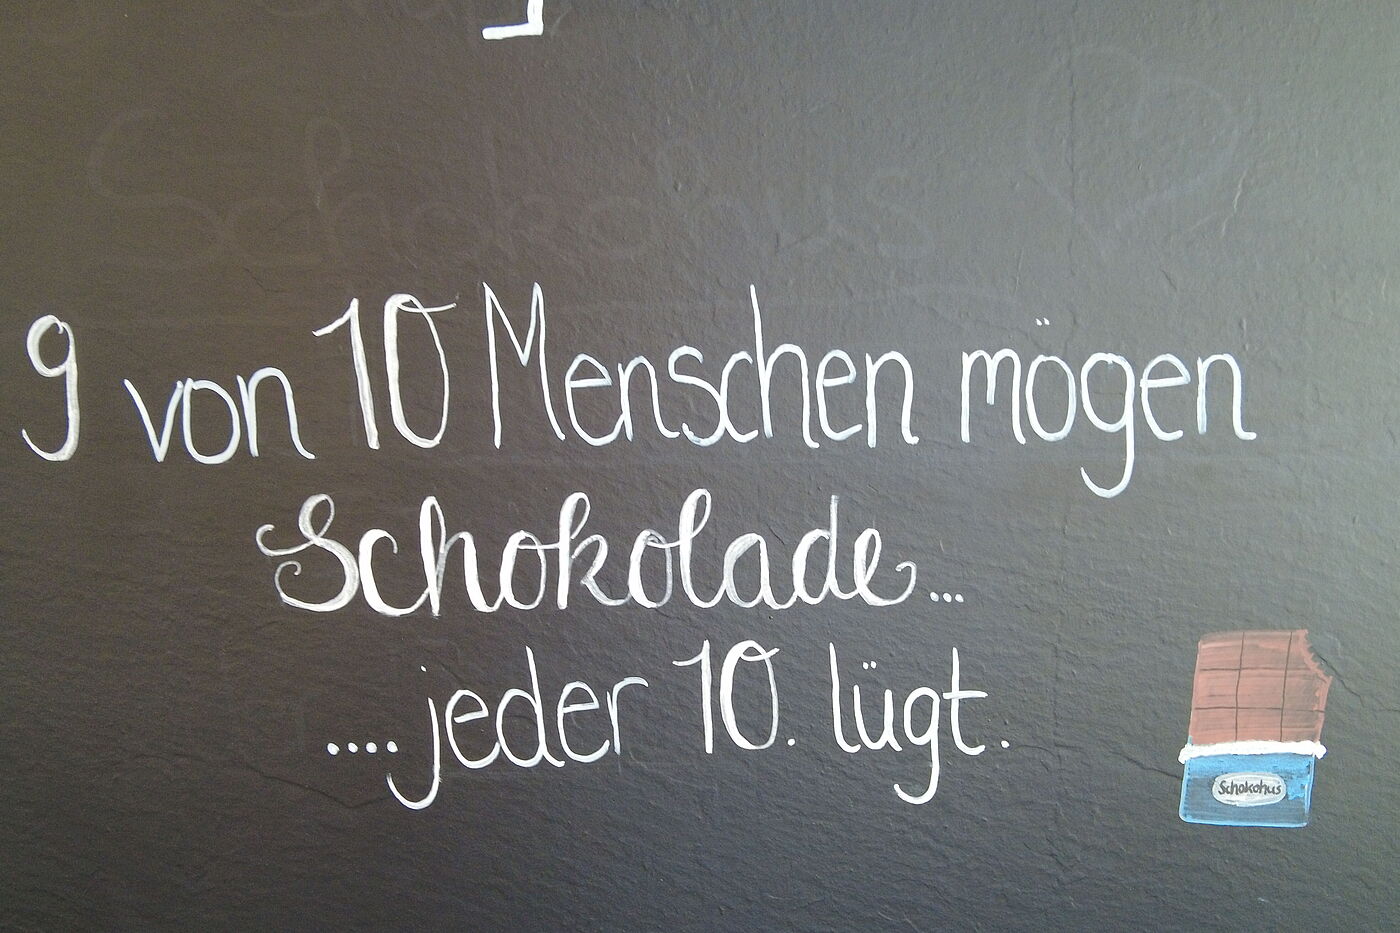 9 von 10 Menschen mögen
Schokolade...
....jeder 10. lügt.
Schokohus